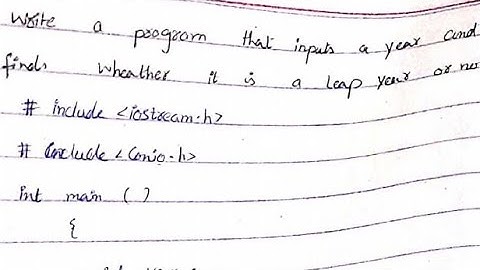 Write a program that inputs a year and
finds wheather it is a leap year or no
# include <iostream.h>
# include <conio.h>
int main ( )
{